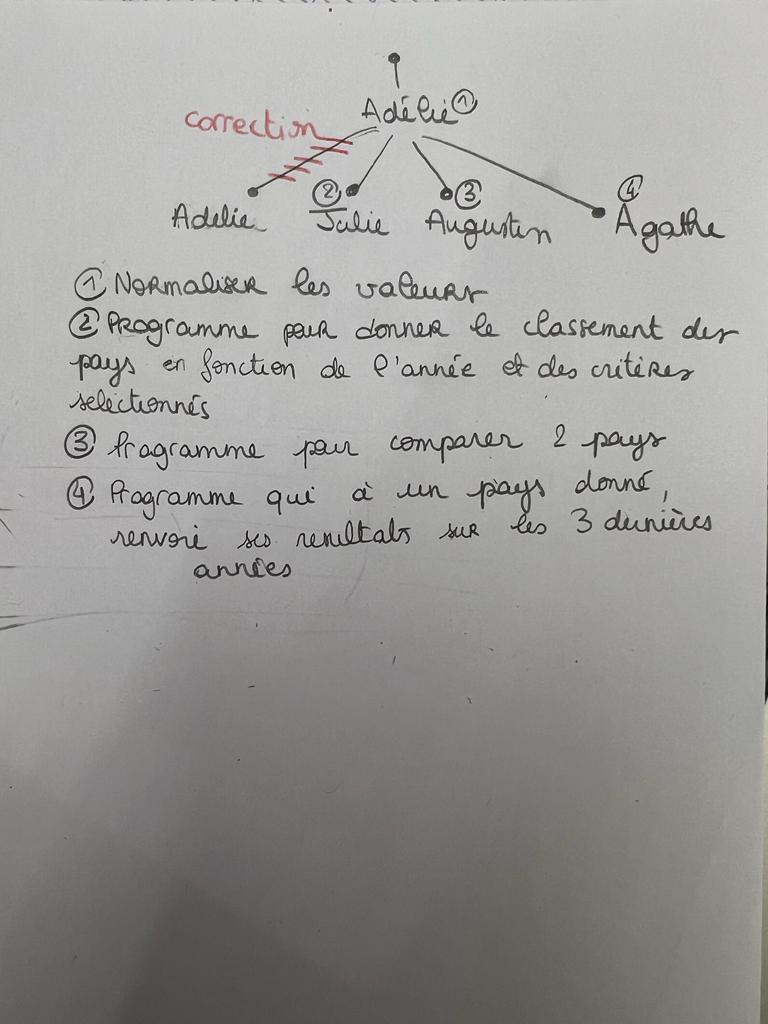 Adélie ①
correction
Adelie ② Julie ③ Augustin ④ Agathe
① Normaliser les valeurs
② Programme pour donner le classement des
pays en fonction de l'année et des critères
selectionnés
③ Programme pour comparer 2 pays
④ Programme qui à un pays donné,
renvoie ses resultats sur les 3 dernières
années